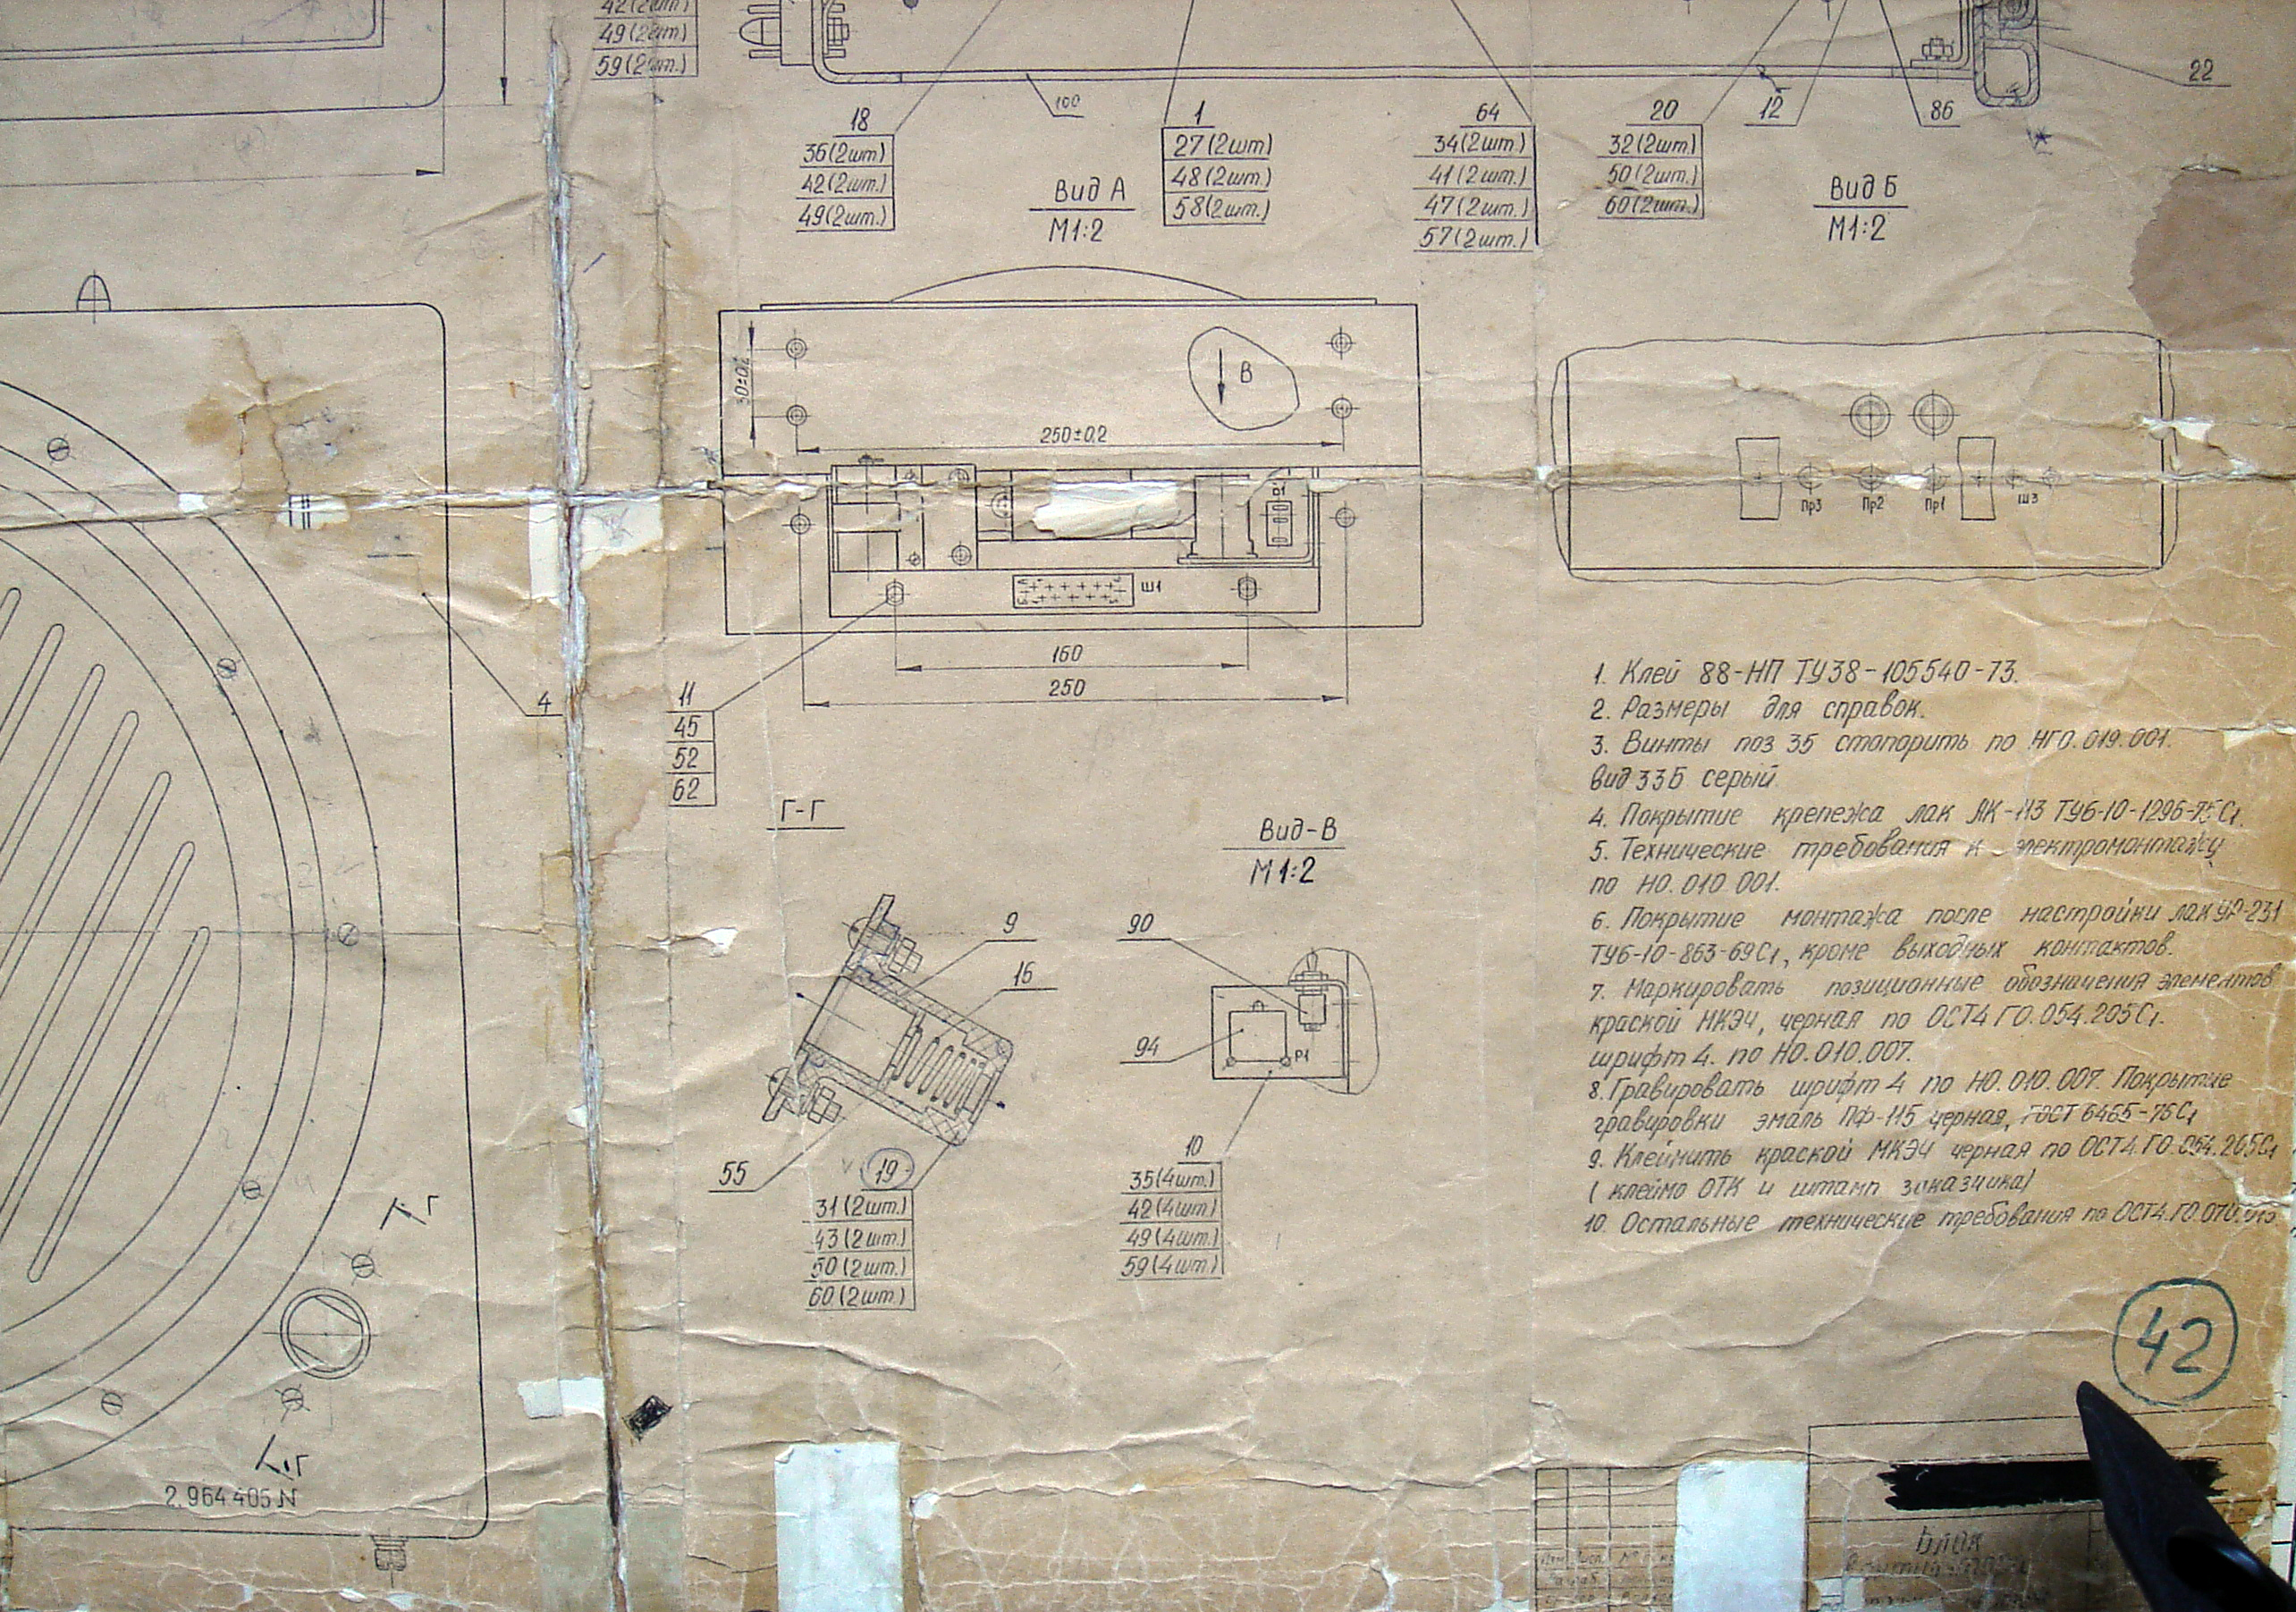 42(2шт.)
49(2шт.)
59(2шт.)
100
22
18
36(2шт)
42(2шт.)
49(2шт.)
1
27(2шт)
48(2шт.)
58(2шт.)
64
34(2шт.)
41(2шт.)
47(2шт.)
57(2шт.)
20
32(2шт.)
50(2шт.)
60(2шт.)
12
86
Вид А
М1:2
Вид Б
М1:2
30±0,2
В
250±0,2
В1
Ш1
160
250
Пр3
Пр2
Пр1
Ш3
4
11
45
52
62
Г-Г
Вид-В
М1:2
9
16
55
19
31(2шт.)
43(2шт.)
50(2шт.)
60(2шт.)
90
94
Р1
10
35(4шт.)
42(4шт.)
49(4шт.)
59(4шт.)
1. Клей 88-НП ТУ38-105540-73.
2. Размеры для справок.
3. Винты поз 35 стопорить по НГО.019.001.
вид 33Б серый
4. Покрытие крепежа лак ЯК-113 ТУ6-10-1296-75С1.
5. Технические требования к электромонтажу
по НО.010.001.
6. Покрытие монтажа после настройки лак УР-231
ТУ6-10-863-69С1, кроме выходных контактов.
7. Маркировать позиционные обозначения элементов
краской МКЭЧ, черная по ОСТ4 ГО.054.205С1.
шрифт 4. по НО.010.007.
8. Гравировать шрифт 4 по НО.010.007. Покрытие
гравировки эмаль ПФ-115 черная, ГОСТ 6465-76С1
9. Клеймить краской МКЭЧ черная по ОСТ4.ГО.054.205С1
( клеймо ОТК и штамп заказчика)
10. Остальные технические требования по ОСТ4.ГО.070.015
Г
Г
2.964.405 N
42
Блок